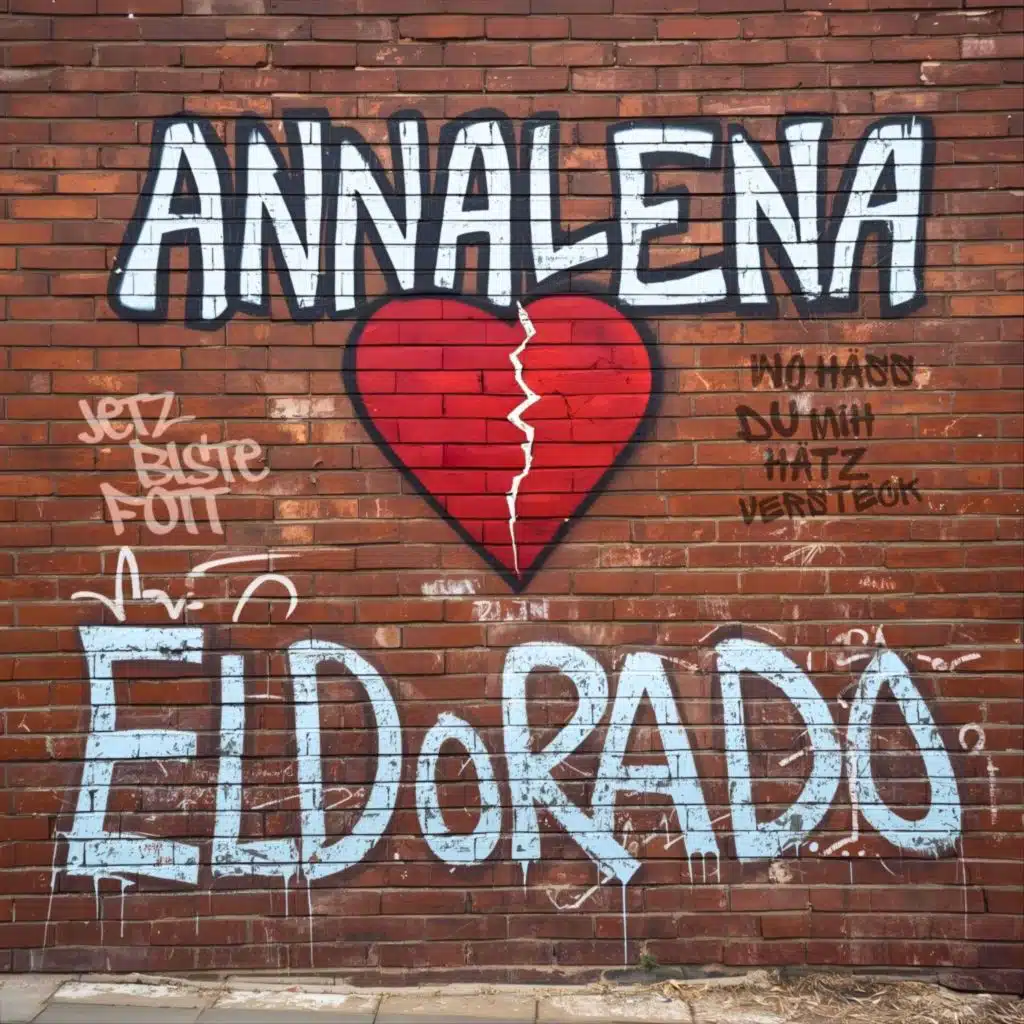 ANNALENA
JETZ
BISTE
FOTT
WO HÄSS
DU MIH
HÄTZ
VERSTECK
ELDORADO